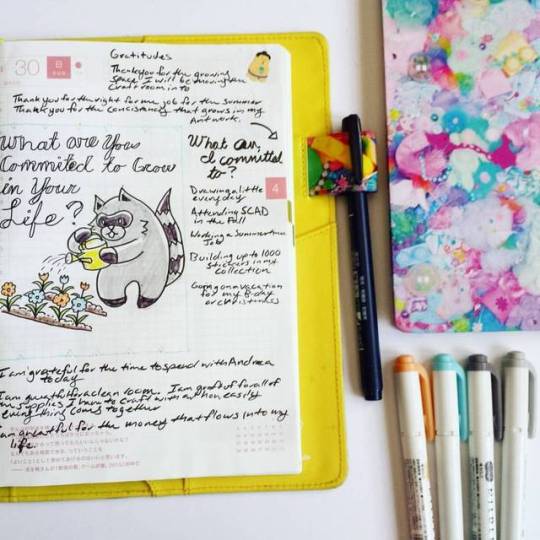 30
日
4
Gratitudes
Thankyou for the growing
Space I will be moving the
Craft room into
Thank you for the right for me job for the Summer
Thank you for the consistency that grows in my
Artwork.
What are You
Commited to Grow
in Your
Life?
What am
I committed
to?
Drawing a little
everyday
Attending SCAD
in the Fall
Working a Summer time
Job
Building up to 1000
Stickers in my
collection
Going on a vacation
for my B-day
or christmas
I am grateful for the time to spend with Andrea
today
I am grateful for a clean room. I am grateful for all of
supplies I have to craft with and how easily
everything comes together
I am greatful for the money that flows into my
life.